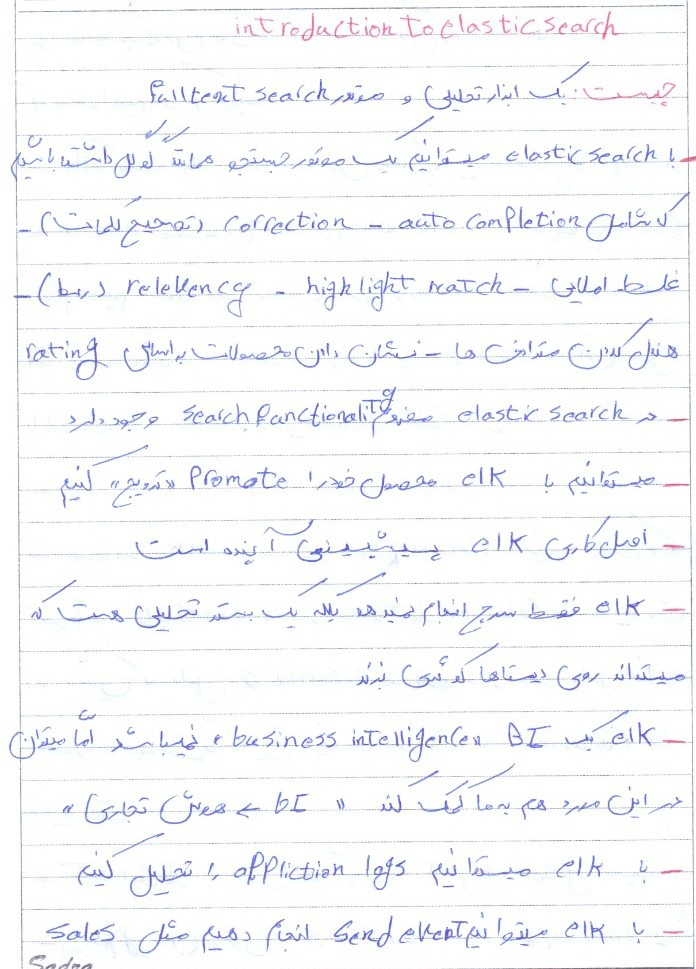 introduction to elastic search
چیست: یک ابزار تحلیلی و موتور fulltext search
- با elastic search میتوانیم یک موتور جستجو همانند گوگل داشته باشیم
که شامل auto completion - correction (تصحیح کلمات) -
غلط املایی - highlight match - relevency (ربط) -
هندل کردن مترادف ها - نشان دادن محصولات براساس rating
- در elastic search مفهوم search functionality وجود دارد
- میتوانیم با elk محصول خود را promote «ترویج» کنیم
- اصل کاری elk پیشبینی آینده است
- elk فقط سرچ انجام نمیدهد بلکه یک بستر تحلیلی هست که
میتواند روی دیتاها کوئری بزند
- elk یک BI «business intelligence» نمیباشد امّا میتوان
در این مورد هم به ما کمک کند «BI ← هوش تجاری»
- با elk میتوانیم appliction logs را تحلیل کنیم
- با elk میتوانیم send event انجام دهیم مثل sales
Sadra